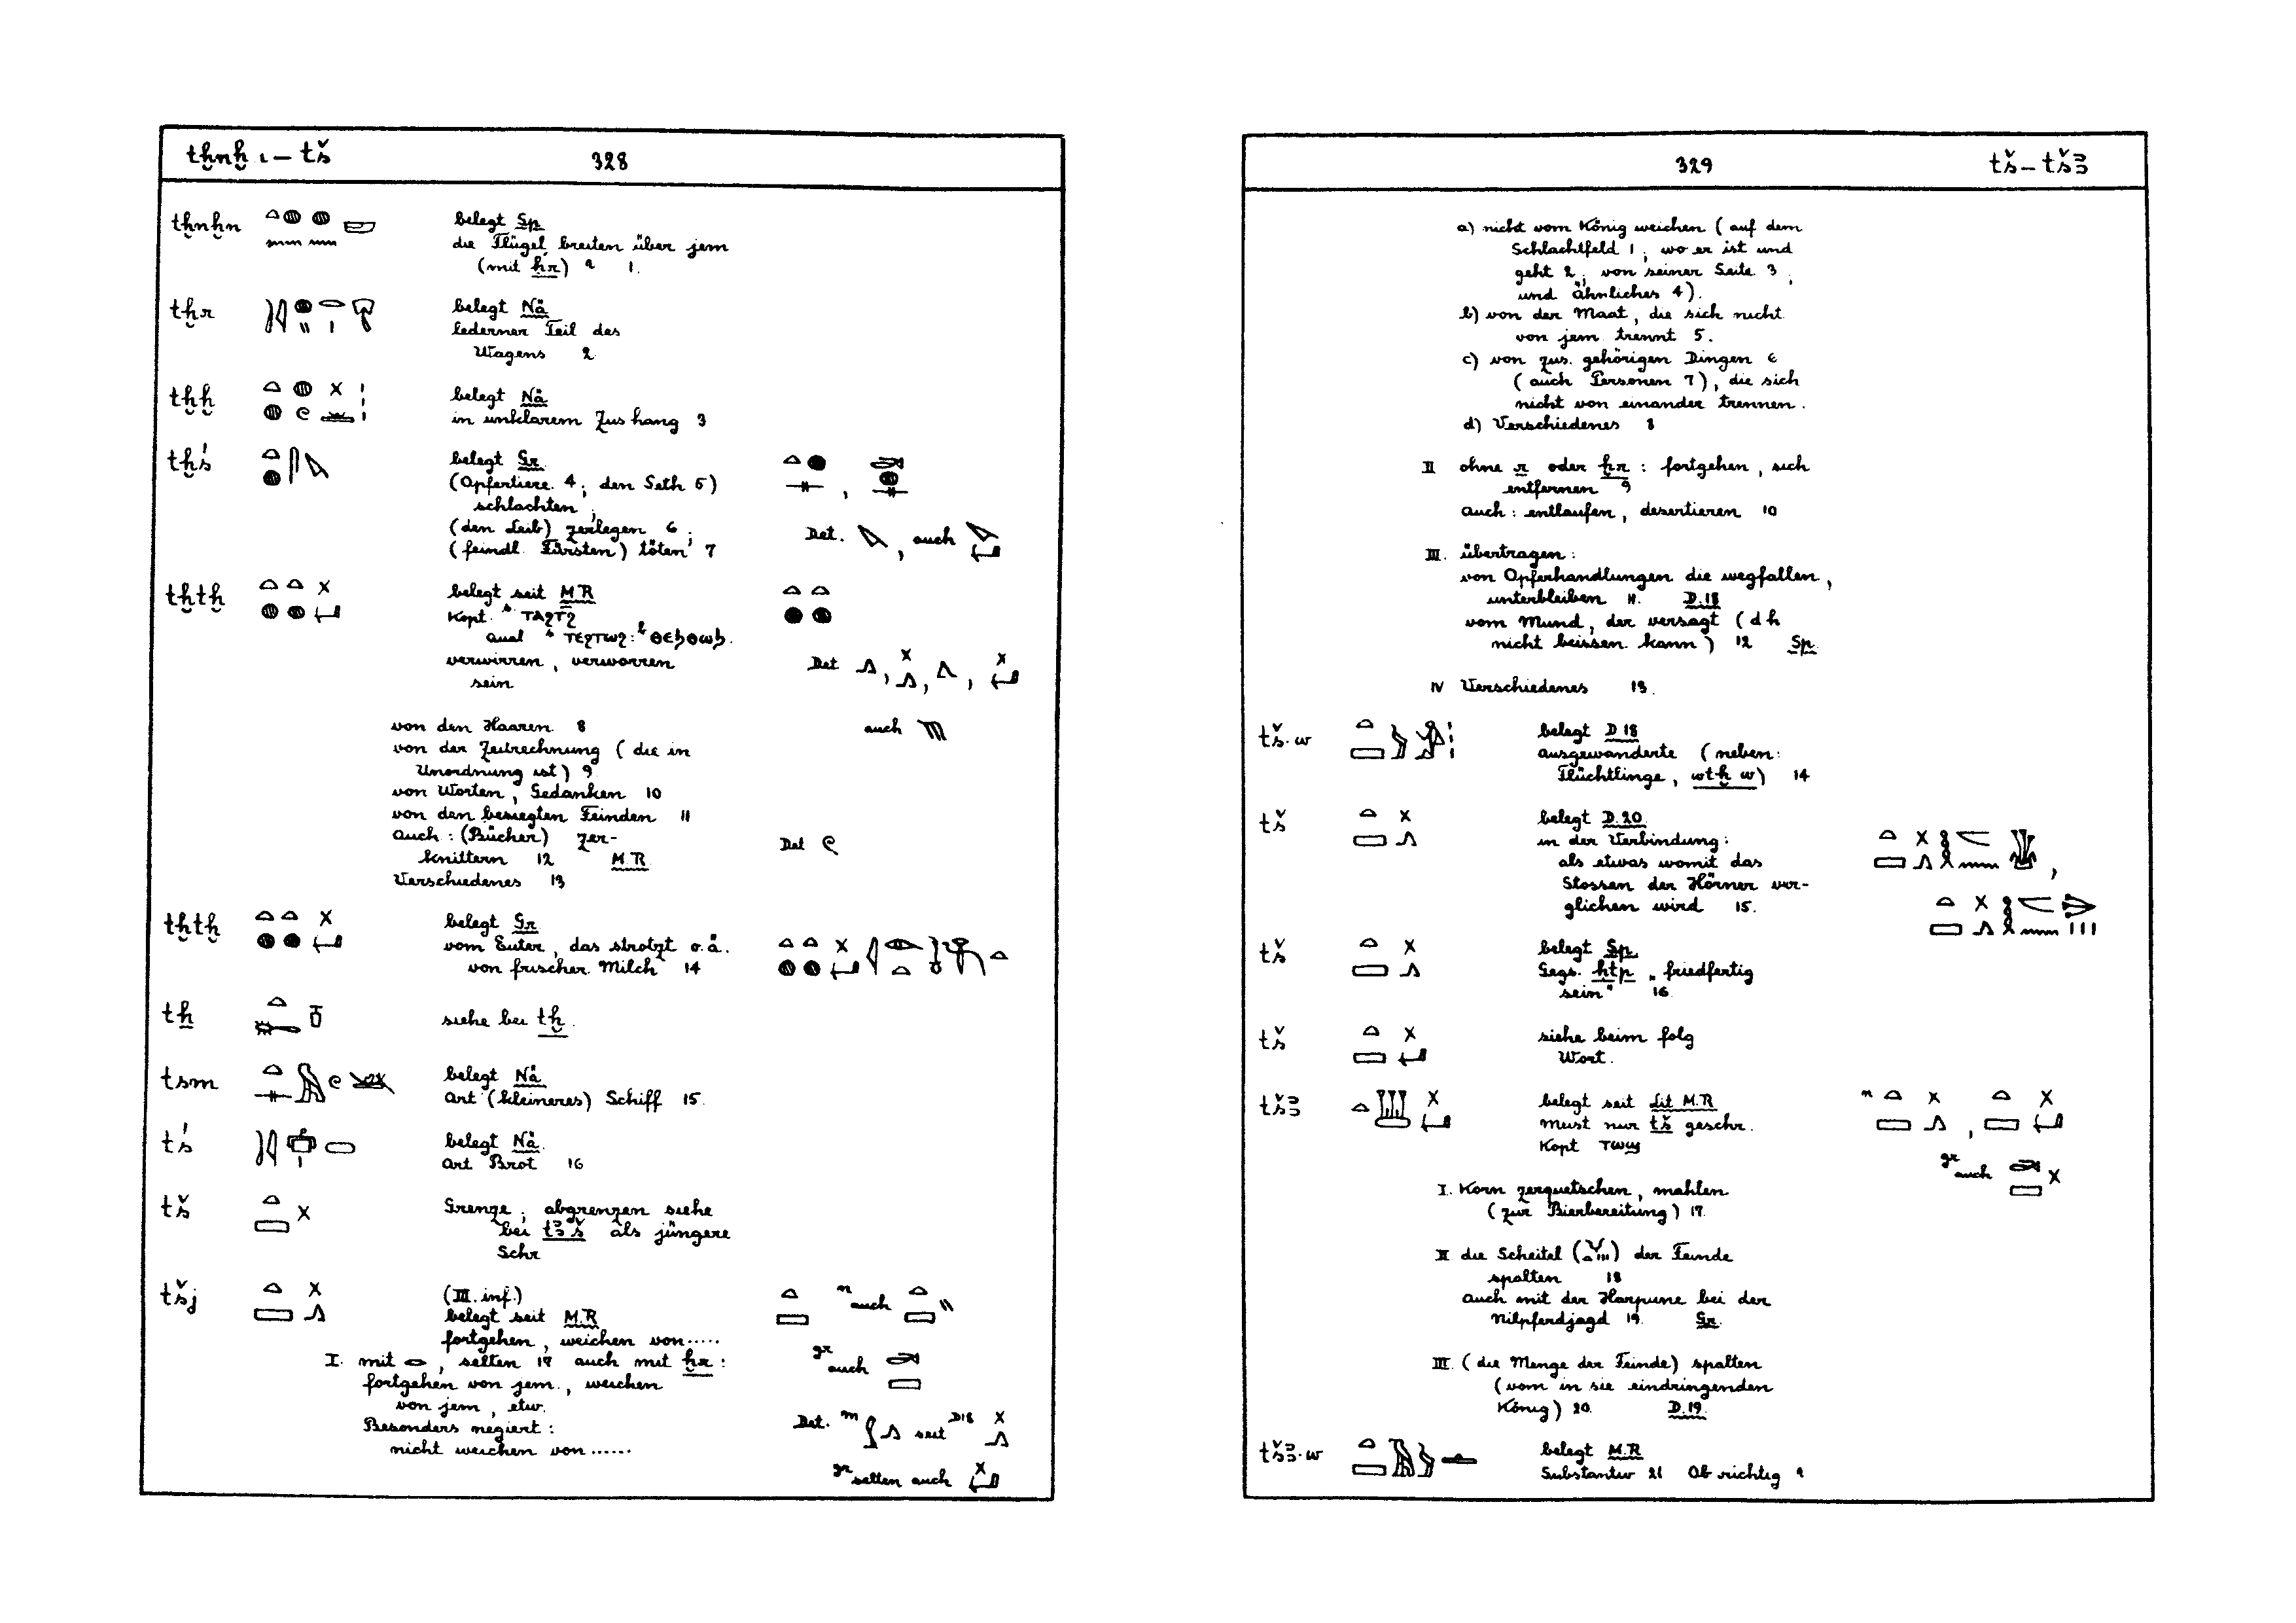 tḫnḫ ı – tš
328
tḫnḫn
belegt Sp
die Flügel breiten über jem
(mit ḥr) ? 1.
tḫr
belegt Nä
lederner Teil des
Wagens 2
tḫḫ
belegt Nä
in unklarem Zushang 3
tḫś
belegt Gr
(Opfertiere 4; den Seth 5)
schlachten;
(den Leib) zerlegen 6;
(feindl. Fürsten) töten 7
Det. , auch
tḫtḫ
belegt seit MR
Kopt. ˢ ⲧⲁϩⲧϩ̄
qual ˢ ⲧⲉϩⲧⲱϩ: ᵇ ⲑⲉϧⲑⲱϧ.
verwirren, verworren
sein
Det , , ,
von den Haaren 8
auch
von der Zeitrechnung (die in
Unordnung ist) 9
von Worten, Gedanken 10
von den besiegten Feinden 11
auch: (Bücher) zer-
knittern 12 M.R
Det
Verschiedenes 13
tḫtḫ
belegt Gr
vom Euter, das strotzt o.ä.
von frischer Milch 14
tẖ
siehe bei tḫ.
tsm
belegt Nä
Art (kleineres) Schiff 15.
tś
belegt Nä.
Art Brot 16
tš
Grenze; abgrenzen siehe
bei tꜣš als jüngere
Schr
tšj
(III. inf.)
belegt seit M.R
fortgehen, weichen von.....
n auch
I. mit , selten 17 auch mit ḥr:
fortgehen von jem., weichen
von jem, etw.
gr auch
Besonders negiert:
nicht weichen von......
Det. m seit D18
gr selten auch
329
tš – tšꜣ
a) nicht vom König weichen (auf dem
Schlachtfeld 1; wo er ist und
geht 2; von seiner Seite 3;
und ähnliches 4).
b) von der Maat, die sich nicht
von jem trennt 5.
c) von zus. gehörigen Dingen 6
(auch Personen 7), die sich
nicht von einander trennen.
d) Verschiedenes 8
II ohne r oder ḥr: fortgehen, sich
entfernen 9
auch: entlaufen, desertieren 10
III. übertragen:
von Opferhandlungen die wegfallen,
unterbleiben 11. D.18
vom Mund, der versagt (d h
nicht beissen kann) 12 Sp.
IV Verschiedenes 13.
tš.w
belegt D 18
ausgewanderte (neben:
Flüchtlinge, wtḫ w) 14
tš
belegt D.20
in der Verbindung:
als etwas womit das
Stossen der Hörner ver-
glichen wird 15.
tš
belegt Sp
Gegs. ḥtp „friedfertig
sein" 16
tš
siehe beim folg
Wort.
tšꜣ
belegt seit Lit M.R
Meist nur tš geschr.
Kopt ⲧⲱϣ
gr auch
I. Korn zerquetschen, mahlen
(zur Bierbereitung) 17.
II die Scheitel ( ) der Feinde
spalten 18
auch mit der Harpune bei der
Nilpferdjagd 19. Gr.
III. (die Menge der Feinde) spalten
(vom in sie eindringenden
König) 20. D.19.
tšꜣ.w
belegt M.R
Substantiv 21 Ob richtig ?